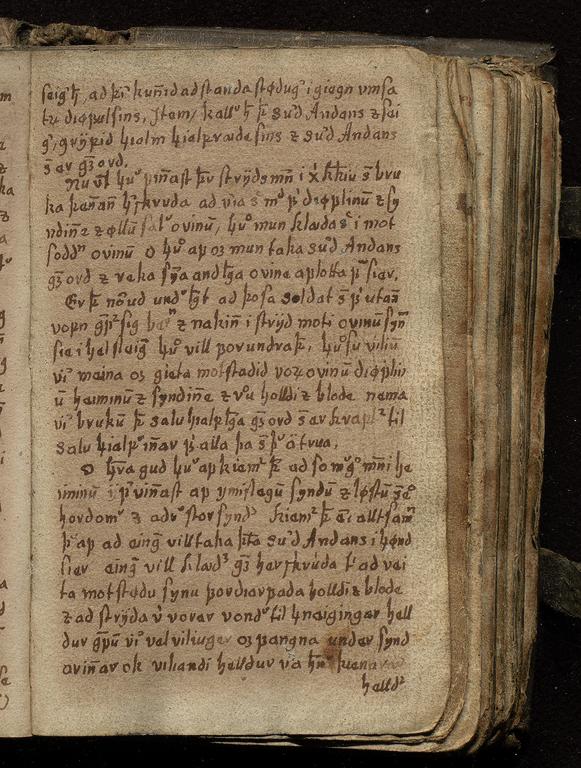 seigh, ad þr kunid ad standa stødug i giegn vmsa
tu diøpulsins, Item, kallr h þ suđ Andans z sei
g, grijpid hialm hialpræde sins z suđ Andans
s er gz ord.
Nu vl hur þinast þr strijdsmn i x krkiu s bru
ka kenan hskruda ad via s mo þ diøplinū z sy
ndine z øllū salr ovinū, hur mun klæda s i mot
soddn ovinū O hur ap oz mun taka suđ Andans
gz ord z reka syna andlga ovine aplotta þ sier.
Er þ noud undrgt ad kosa soldat s þ utan
vopn gþsig ber z nakin i strijd moti ovinū syn
sie i hel sleig hur vill þorundra þ, hur su viliū
vi meina oz gieta motstadid vorz ovinū diøpli
ū heiminū z syndine z vru holldi z blode nema
vi brukū þ salu hialplga gz ord s er krapt til
salu hialpinar þ alla þa s þ a trua.
O hva gud hur ap kiem þ ad so mg mni he
iminū i þ vinast ap ymislegū syndū z løstū so
hordom z adr stor synd kiem þ ei allt sam
þ ap ad eing vill taka þta suđ Andans i hønd
sier eing vill klæd gz herskruda t ad vei
ta motstødu synu þordiarpada holldi z blode
z ad strijda v vorar vondr til hneigingar hell
dur gþū vi vel viliuger oz þangna under synd
arinar ok viliandi helldur va hn
helld